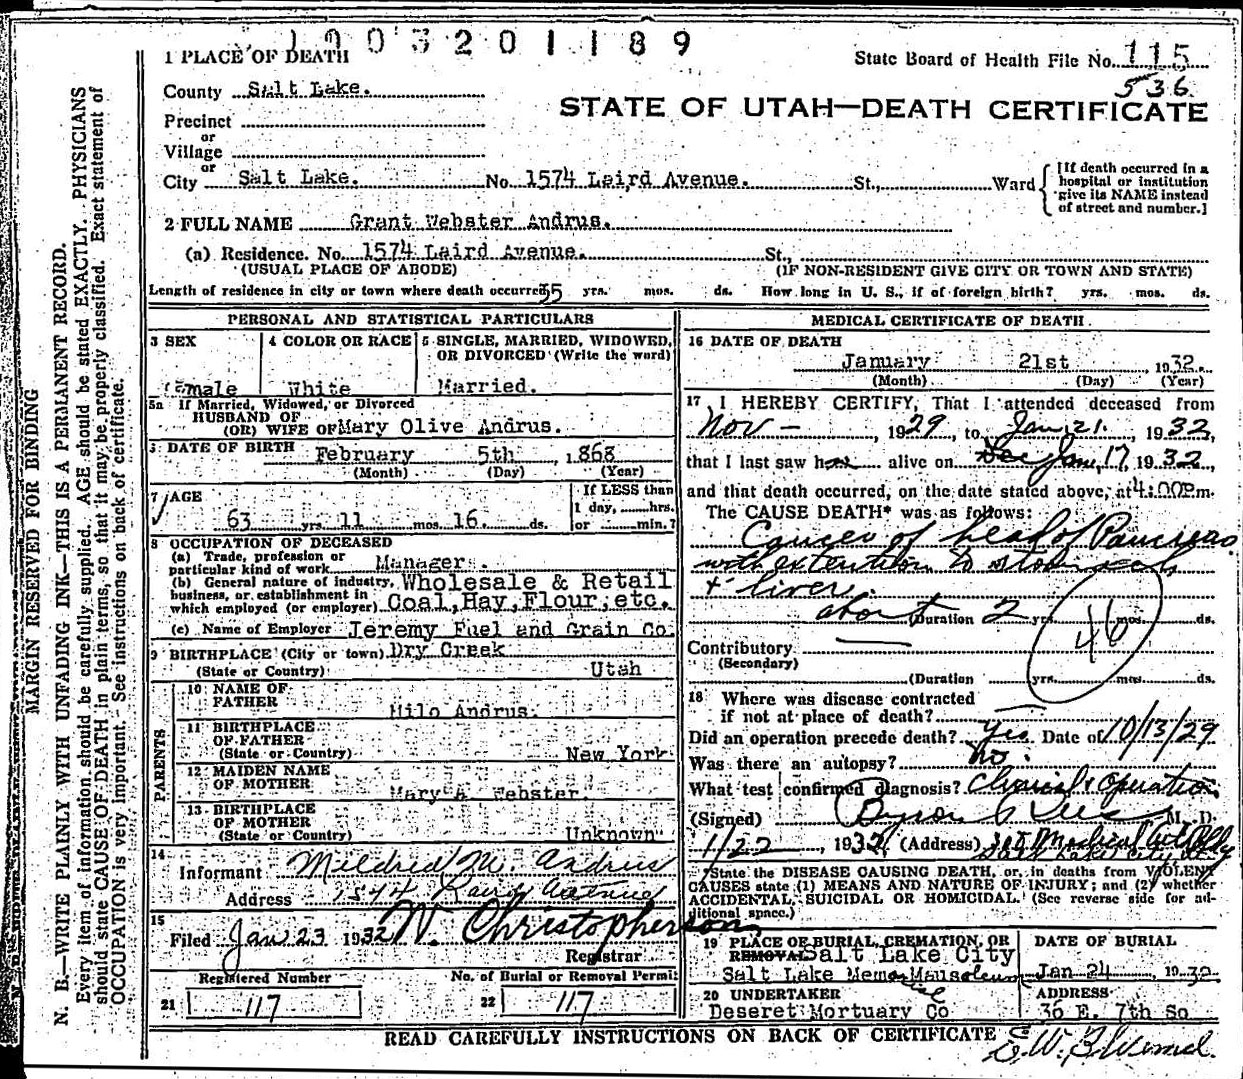 1003201189
1 PLACE OF DEATH
State Board of Health File No. 115
536
County Salt Lake.
STATE OF UTAH—DEATH CERTIFICATE
Precinct
or
Village
or
City Salt Lake. No. 1574 Laird Avenue. St., Ward
[If death occurred in a
hospital or institution
give its NAME instead
of street and number.]
2 FULL NAME Grant Webster Andrus.
(a) Residence. No. 1574 Laird Avenue. St.,
(USUAL PLACE OF ABODE) (IF NON-RESIDENT GIVE CITY OR TOWN AND STATE)
Length of residence in city or town where death occurred 55 yrs. mos. ds. How long in U. S., if of foreign birth? yrs. mos. ds.
PERSONAL AND STATISTICAL PARTICULARS
3 SEX 4 COLOR OR RACE 5 SINGLE, MARRIED, WIDOWED,
OR DIVORCED (Write the word)
male White Married.
5a If Married, Widowed, or Divorced
HUSBAND OF
(OR) WIFE OF Mary Olive Andrus.
6 DATE OF BIRTH February 5th 1868
(Month) (Day) (Year)
7 AGE
If LESS than
1 day, hrs.
or min.?
63 yrs. 11 mos. 16. ds.
8 OCCUPATION OF DECEASED
(a) Trade, profession or
particular kind of work Manager.
(b) General nature of industry,
business, or establishment in
which employed (or employer)
Wholesale & Retail
Coal, Hay, Flour, etc.
(c) Name of Employer Jeremy Fuel and Grain Co.
9 BIRTHPLACE (City or town) Dry Creek
(State or Country) Utah
PARENTS
10 NAME OF
FATHER Milo Andrus.
11 BIRTHPLACE
OF FATHER
(State or Country) New York
12 MAIDEN NAME
OF MOTHER Mary A Webster.
13 BIRTHPLACE
OF MOTHER
(State or Country) Unknown
14
Informant Mildred M. Andrus
Address 1574 Laird Avenue
15
Filed Jan 23 1932 W. Christopherson
Registrar
Registered Number No. of Burial or Removal Permit
21 117 22 117
MEDICAL CERTIFICATE OF DEATH
16 DATE OF DEATH
January 21st, 1932.
(Month) (Day) (Year)
17 I HEREBY CERTIFY, That I attended deceased from
Nov —, 1929, to Jan 21, 1932,
that I last saw h alive on Dec Jan 17, 1932,
and that death occurred, on the date stated above, at 4:00P.m.
The CAUSE DEATH* was as follows:
Cancer of head of Pancreas
with extention to stomach
+ liver.
about (Duration 2 yrs. mos. ds.
46
Contributory
(Secondary)
(Duration yrs. mos. ds.
18 Where was disease contracted
if not at place of death?
Did an operation precede death? Yes Date of 10/13/29
Was there an autopsy? No.
What test confirmed diagnosis? Clinical & Operation
(Signed) Byron Rees M. D.
1/22, 1932, (Address) Medical Arts Bldg
Salt Lake City Ut
*State the DISEASE CAUSING DEATH, or, in deaths from VIOLENT
CAUSES state (1) MEANS AND NATURE OF INJURY; and (2) whether
ACCIDENTAL, SUICIDAL OR HOMICIDAL. (See reverse side for ad-
ditional space.)
19 PLACE OF BURIAL, CREMATION, OR
REMOVAL Salt Lake City
Salt Lake Memorial Mausoleum
DATE OF BURIAL
Jan 24, 1932
20 UNDERTAKER
Deseret Mortuary Co
ADDRESS
36 E. 7th So
READ CAREFULLY INSTRUCTIONS ON BACK OF CERTIFICATE
MARGIN RESERVED FOR BINDING
N. B.—WRITE PLAINLY WITH UNFADING INK—THIS IS A PERMANENT RECORD.
Every item of information should be carefully supplied. AGE should be stated EXACTLY. PHYSICIANS
should state CAUSE OF DEATH in plain terms, so that it may be properly classified. Exact statement of
OCCUPATION is very important. See instructions on back of certificate.